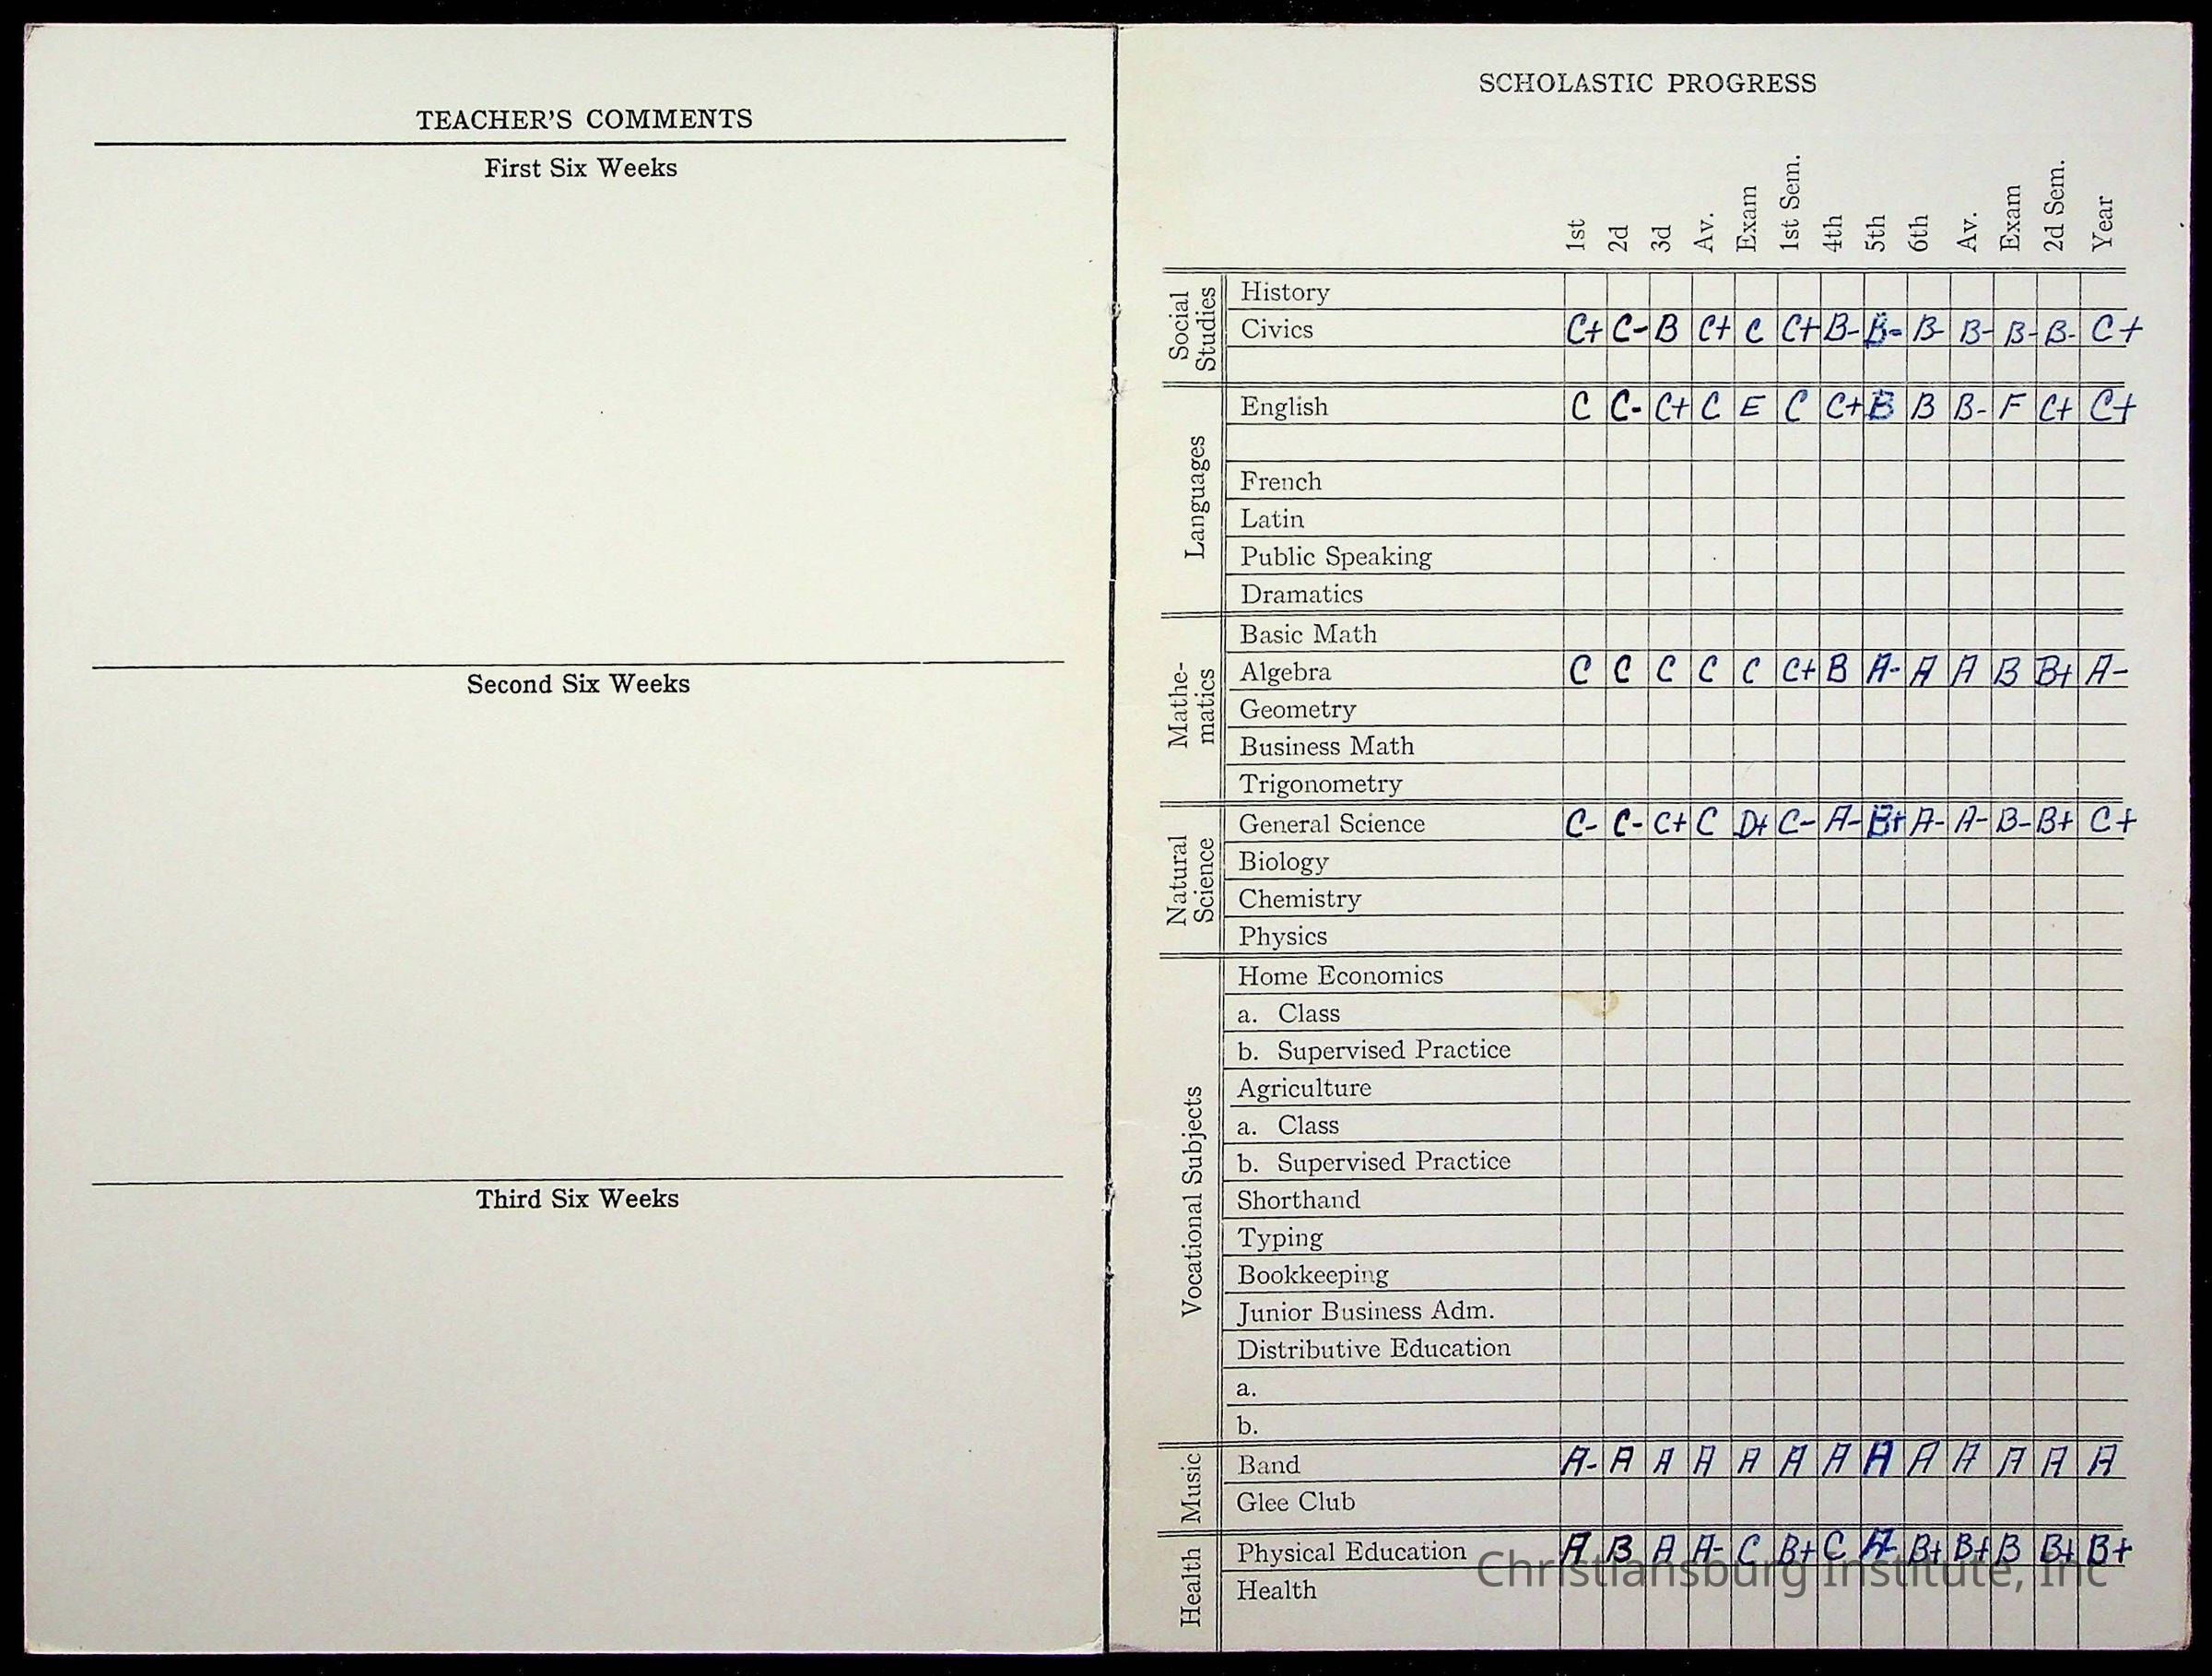 TEACHER'S COMMENTS
First Six Weeks
Second Six Weeks
Third Six Weeks
SCHOLASTIC PROGRESS
1st 2d 3d Av. Exam 1st Sem. 4th 5th 6th Av. Exam 2d Sem. Year
Social Studies
History
Civics C+ C- B C+ C C+ B- B- B- B- B- B- C+
Languages
English C C- C+ C E C C+ B B B- F C+ C+
French
Latin
Public Speaking
Dramatics
Mathe-
matics
Basic Math
Algebra C C C C C C+ B A- A A B B+ A-
Geometry
Business Math
Trigonometry
Natural
Science
General Science C- C- C+ C D+ C- A- B+ A- A- B- B+ C+
Biology
Chemistry
Physics
Vocational Subjects
Home Economics
a. Class
b. Supervised Practice
Agriculture
a. Class
b. Supervised Practice
Shorthand
Typing
Bookkeeping
Junior Business Adm.
Distributive Education
a.
b.
Music
Band A- A A A A A A A A A A A A
Glee Club
Health
Physical Education A B A A- C B+ C A- B+ B+ B B+ B+
Health
Christiansburg Institute, Inc